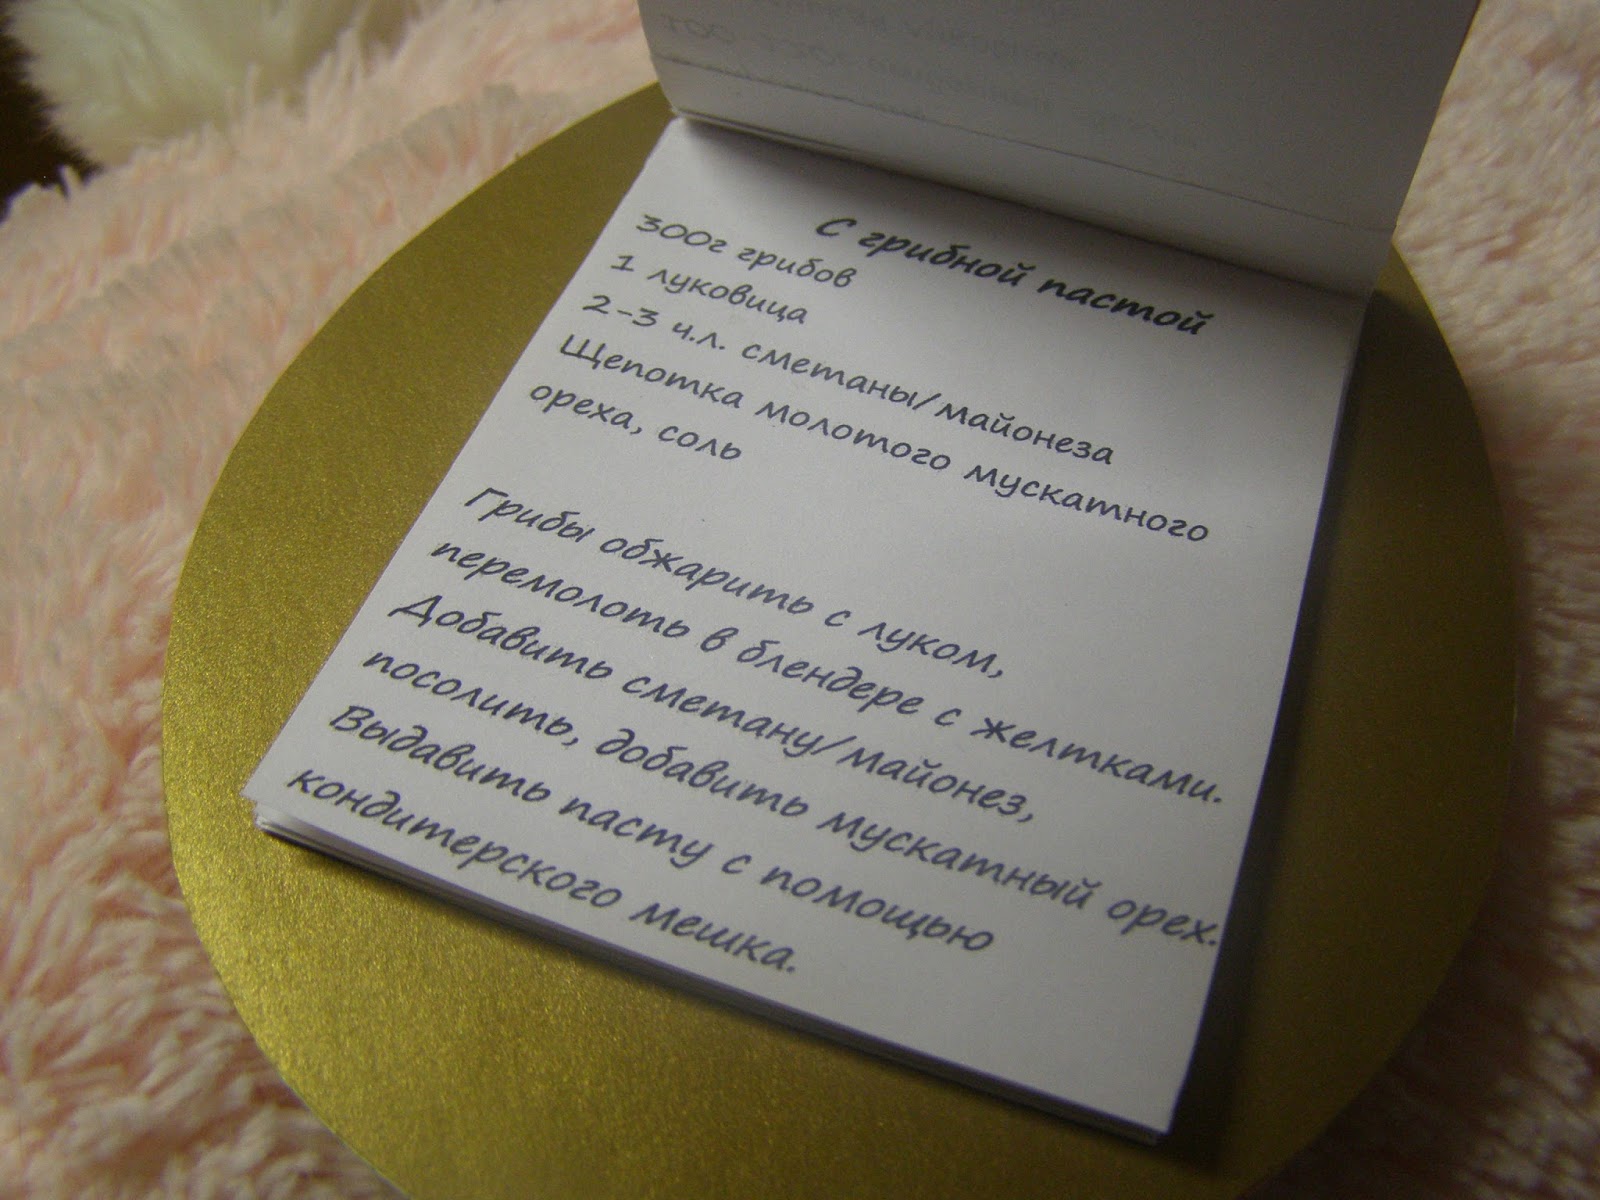 С грибной пастой
300г грибов
1 луковица
2-3 ч.л. сметаны/майонеза
Щепотка молотого мускатного
ореха, соль
Грибы обжарить с луком,
перемолоть в блендере с желтками.
Добавить сметану/майонез,
посолить, добавить мускатный орех.
Выдавить пасту с помощью
кондитерского мешка.